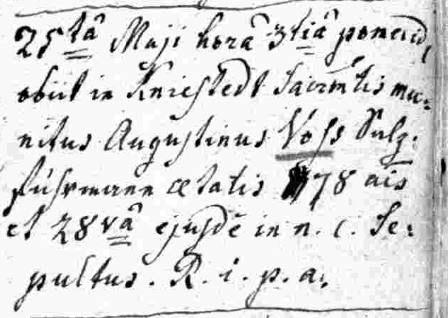 25tâ Maji horâ 3tiâ pomerid,
obiit in Kniestedt Sacrmtis mu=
nitus Augustinus Voss Sulz.
fuhrmann ætatis 78 ais
et 28vâ ejusdē in n. c. Se:
pultus. R. i. p. a.